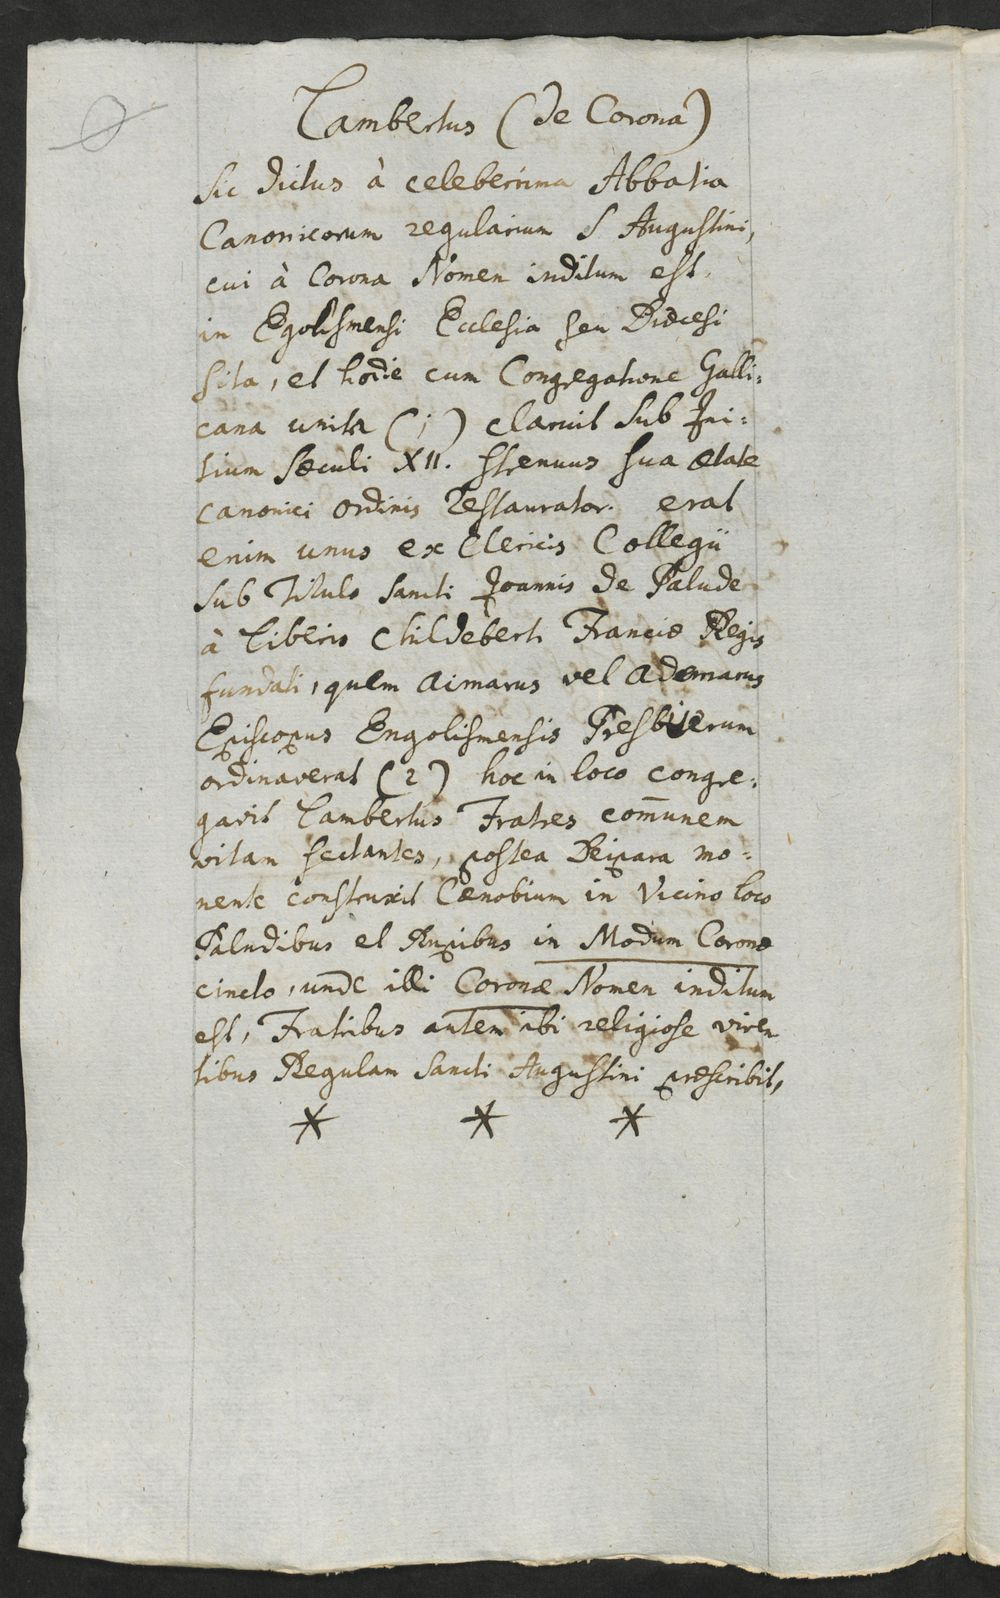 Lambertus (de Corona)
sic dictus à celeberrima Abbatia
Canonicorum regularium S Augustini,
cui à Corona Nomen inditum est.
in Egolismensi Ecclesia seu Diœcesi
sita, et hodie cum Congregatione Galli=
cana unita (1) claruit sub Ini=
tium sæculi XII. strenuus sua ætate
canonici ordinis restaurator. erat
enim unus ex Clericis Collegii
sub Titulo sancti Joannis de Palude
à liberis Childeberti Franciæ Regis
fundati, quem Aimarus vel Ademarus
Episcopus Engolismensis Presbiterum
ordinaverat (2) hoc in loco congre=
gavit Lambertus Fratres com̄unem
vitam sectantes, postea Deipara mo=
nente construxit Cænobium in Vicino loco
Paludibus et Rupibus in Modum Coronæ
cincto, unde illi Coronæ Nomen inditum
est, Fratribus autem ibi religiose viven
tibus Regulam Sancti Augustini præscribit,
* * *